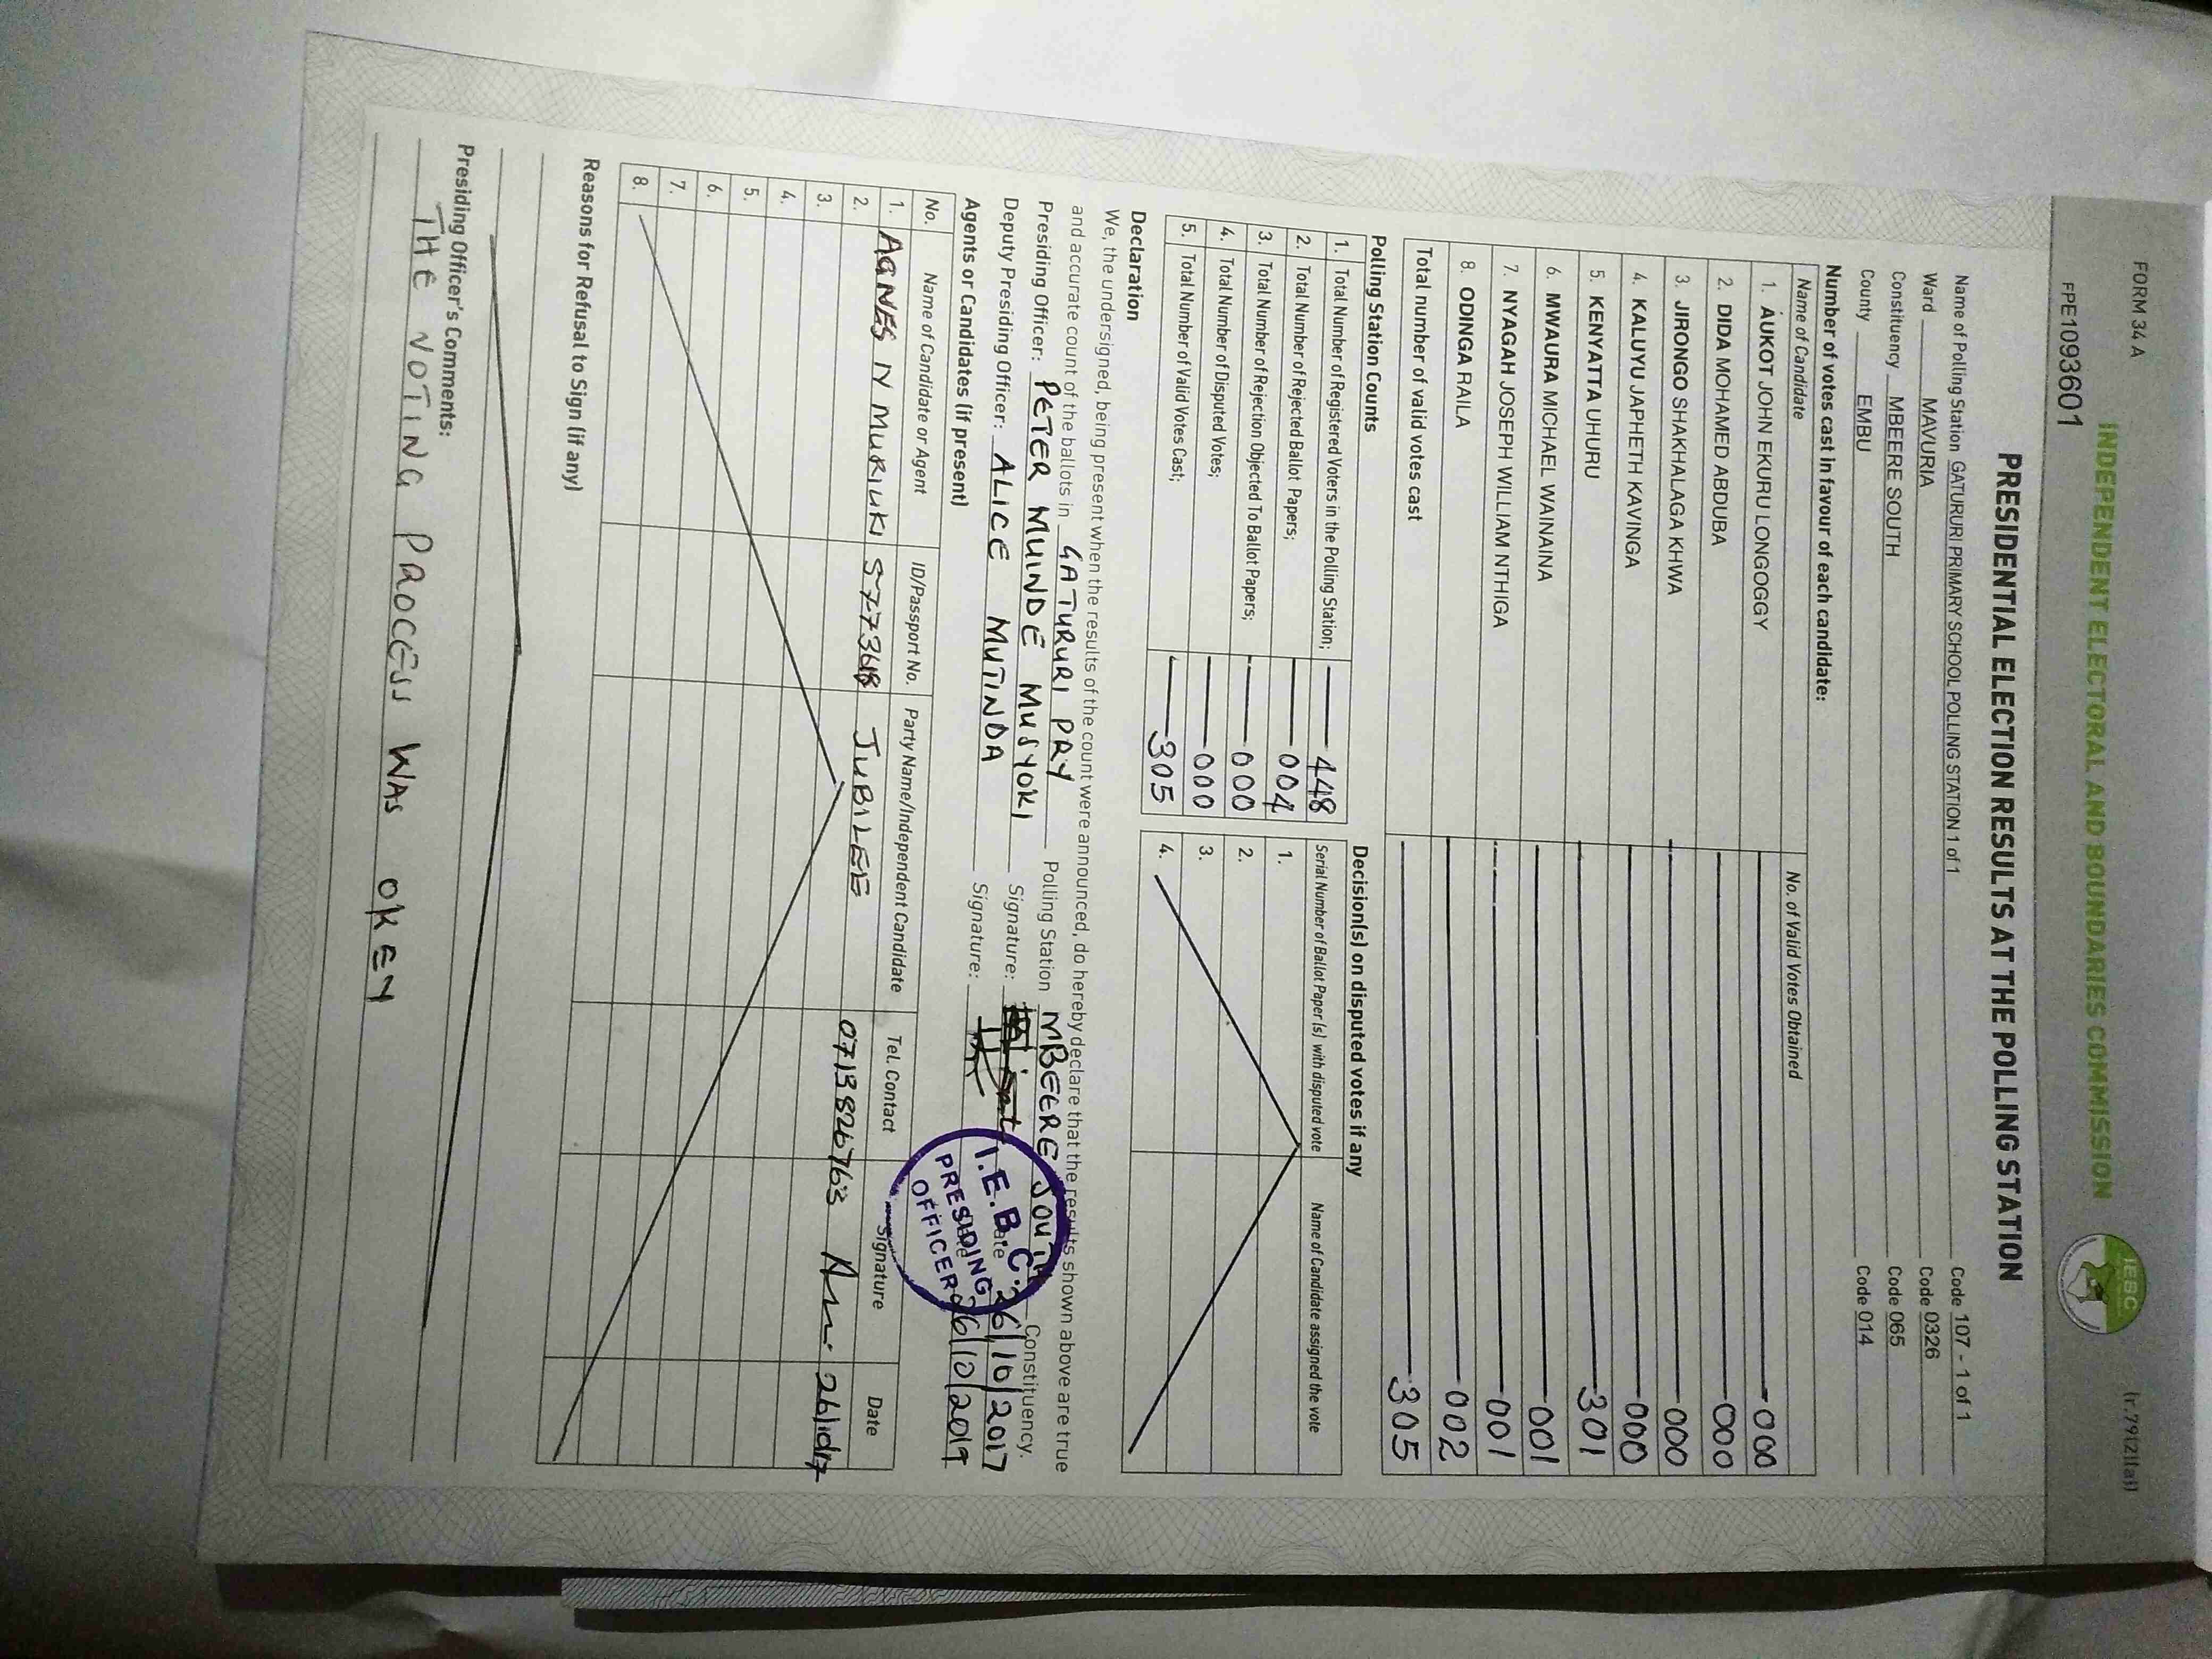 FORM 34 A
(r.79(2)(a))
INDEPENDENT ELECTORAL AND BOUNDARIES COMMISSION
IEBC
FPE1093601
PRESIDENTIAL ELECTION RESULTS AT THE POLLING STATION
Name of Polling Station GATURURI PRIMARY SCHOOL POLLING STATION 1 of 1 Code 107 - 1 of 1
Ward MAVURIA Code 0326
Constituency MBEERE SOUTH Code 065
County EMBU Code 014
Number of votes cast in favour of each candidate:
Name of Candidate No. of Valid Votes Obtained
1. AUKOT JOHN EKURU LONGOGGY 000
2. DIDA MOHAMED ABDUBA 000
3. JIRONGO SHAKHALAGA KHWA 000
4. KALUYU JAPHETH KAVINGA 000
5. KENYATTA UHURU 301
6. MWAURA MICHAEL WAINAINA 001
7. NYAGAH JOSEPH WILLIAM NTHIGA 001
8. ODINGA RAILA 002
Total number of valid votes cast 305
Polling Station Counts
1. Total Number of Registered Voters in the Polling Station; 448
2. Total Number of Rejected Ballot Papers; 004
3. Total Number of Rejection Objected To Ballot Papers; 000
4. Total Number of Disputed Votes; 000
5. Total Number of Valid Votes Cast; 305
Decision(s) on disputed votes if any
Serial Number of Ballot Paper (s) with disputed vote Name of Candidate assigned the vote
1.
2.
3.
4.
Declaration
We, the undersigned, being present when the results of the count were announced, do hereby declare that the results shown above are true
and accurate count of the ballots in GATURURI PRY Polling Station MBEERE SOUTH Constituency.
Presiding Officer: PETER MUINDE MUSYOKI Signature: Date 26/10/2017
Deputy Presiding Officer: ALICE MUTINDA Signature: 26/10/2019
I.E.B.C.
PRESIDING
OFFICER
Agents or Candidates (if present)
No. Name of Candidate or Agent ID/Passport No. Party Name/Independent Candidate Tel. Contact Signature Date
1. AGNES N MURIUKI JUBILEE 0713826763 26/10/17
2.
3.
4.
5.
6.
7.
8.
Reasons for Refusal to Sign (if any)
Presiding Officer's Comments:
THE VOTING PROCESS WAS OKEY